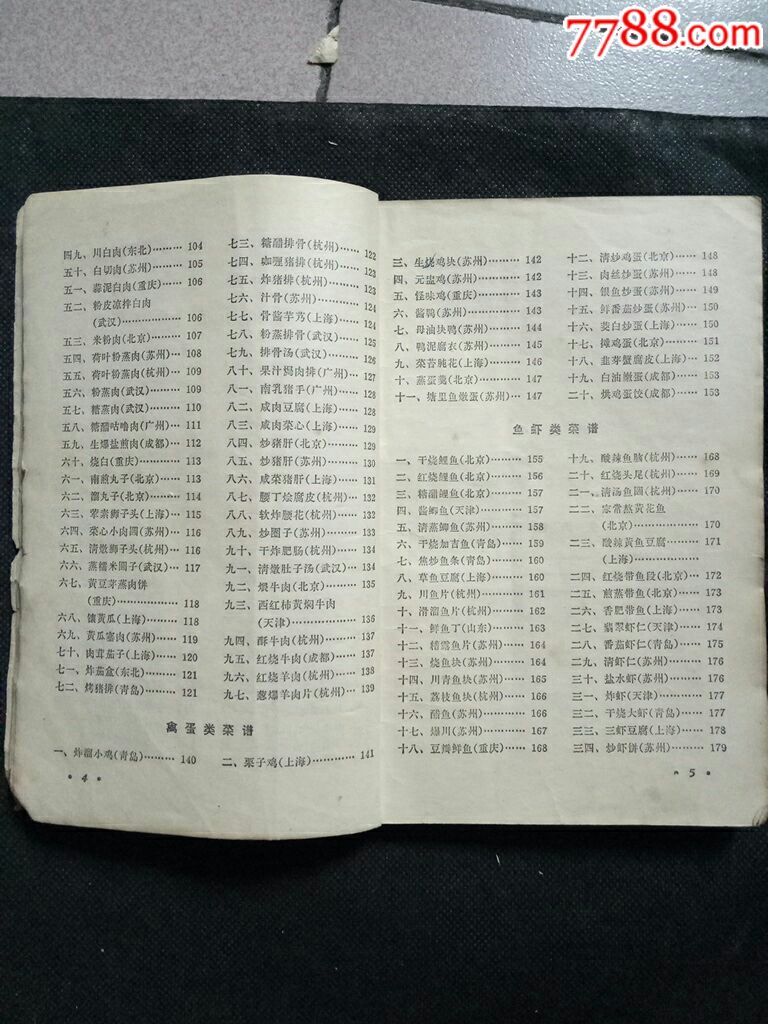 7788.com
四九、川白肉(东北)……… 104
五十、白切肉(苏州)……… 105
五一、蒜泥白肉(重庆)…… 106
五二、粉皮凉拌白肉
(武汉)……………… 106
五三、米粉肉(北京)……… 107
五四、荷叶粉蒸肉(苏州)… 108
五五、荷叶粉蒸肉(杭州)… 109
五六、粉蒸肉(武汉)……… 109
五七、糖蒸肉(武汉)……… 110
五八、糖醋咕噜肉(广州)… 111
五九、生爆盐煎肉(成都)… 112
六十、烧白(重庆)………… 113
六一、南煎丸子(北京)…… 113
六二、溜丸子(北京)……… 114
六三、荤素狮子头(上海)… 115
六四、菜心小肉圆(苏州)… 116
六五、清燉狮子头(杭州)… 116
六六、蒸糯米圆子(武汉)… 117
六七、黄豆茅蒸肉饼
(重庆)……………… 118
六八、镶黄瓜(上海)……… 118
六九、黄瓜塞肉(苏州)…… 119
七十、肉茸茄子(上海)…… 120
七一、炸茄盒(东北)……… 121
七二、烤猪排(青岛)……… 121
七三、糖醋排骨(杭州)…… 122
七四、咖喱猪排(杭州)…… 123
七五、炸猪排(杭州)……… 123
七六、汁骨(苏州)………… 124
七七、骨酱芋艿(上海)…… 124
七八、粉蒸排骨(武汉)…… 125
七九、排骨汤(武汉)……… 126
八十、果汁焗肉排(广州)… 126
八一、南乳猪手(广州)…… 127
八二、咸肉豆腐(上海)…… 128
八三、咸肉菜心(上海)…… 128
八四、炒猪肝(北京)……… 129
八五、炒猪肝(苏州)……… 130
八六、咸菜猪肝(上海)…… 131
八七、腰丁烩腐皮(杭州)… 132
八八、软炸腰花(杭州)…… 132
八九、炒圈子(苏州)……… 133
九十、干炸肥肠(杭州)…… 133
九一、清燉肚子汤(武汉)… 134
九二、煨牛肉(北京)……… 135
九三、西红柿黄焖牛肉
(天津)……………… 136
九四、酥牛肉(杭州)……… 137
九五、红烧牛肉(成都)…… 137
九六、红烧羊肉(杭州)…… 138
九七、葱爆羊肉片(杭州)… 139
禽蛋类菜谱
一、炸溜小鸡(青岛)……… 140
二、栗子鸡(上海)………… 141
• 4 •
三、生烧鸡块(苏州)……… 142
四、元盅鸡(苏州)………… 142
五、怪味鸡(重庆)………… 143
六、酱鸭(苏州)…………… 143
七、母油块鸭(苏州)……… 144
八、鸭泥腐衣(苏州)……… 145
九、菜苔肫花(上海)……… 146
十、蒸蛋羹(北京)………… 147
十一、塘里鱼燉蛋(苏州)… 147
十二、清炒鸡蛋(北京)…… 148
十三、肉丝炒蛋(苏州)…… 148
十四、银鱼炒蛋(苏州)…… 149
十五、鲜番茄炒蛋(苏州)… 150
十六、茭白炒蛋(上海)…… 150
十七、摊鸡蛋(北京)……… 151
十八、韭芽蟹腐皮(上海)… 152
十九、白油嫩蛋(成都)…… 153
二十、烘鸡蛋饺(成都)…… 153
鱼虾类菜谱
一、干烧鲤鱼(北京)……… 155
二、红烧鲤鱼(北京)……… 156
三、糖醋鲤鱼(北京)……… 157
四、酱鲫鱼(天津)………… 157
五、清蒸鲫鱼(苏州)……… 158
六、干烧加吉鱼(青岛)…… 159
七、焦炒鱼条(青岛)……… 160
八、草鱼豆腐(上海)……… 160
九、川鱼片(杭州)………… 161
十、滑溜鱼片(杭州)……… 162
十一、鲜鱼丁(山东)……… 163
十二、糟溜鱼片(苏州)…… 164
十三、烧鱼块(苏州)……… 164
十四、川青鱼块(苏州)…… 165
十五、荔枝鱼块(杭州)…… 166
十六、醋鱼(苏州)………… 166
十七、爆川(苏州)………… 167
十八、豆瓣鲜鱼(重庆)…… 168
十九、酸辣鱼脑(杭州)…… 168
二十、红烧头尾(杭州)…… 169
二一、清汤鱼圆(杭州)…… 170
二二、家常熬黄花鱼
(北京)……………… 170
二三、酸辣黄鱼豆腐
(上海)……………… 171
二四、红烧带鱼段(北京)… 172
二五、煎蒸带鱼(北京)…… 172
二六、香肥带鱼(上海)…… 173
二七、翡翠虾仁(天津)…… 174
二八、番茄虾仁(青岛)…… 175
二九、清虾仁(苏州)……… 176
三十、盐水虾(苏州)……… 176
三一、炸虾(天津)………… 177
三二、干烧大虾(青岛)…… 177
三三、三虾豆腐(上海)…… 178
三四、炒虾饼(苏州)……… 179
• 5 •